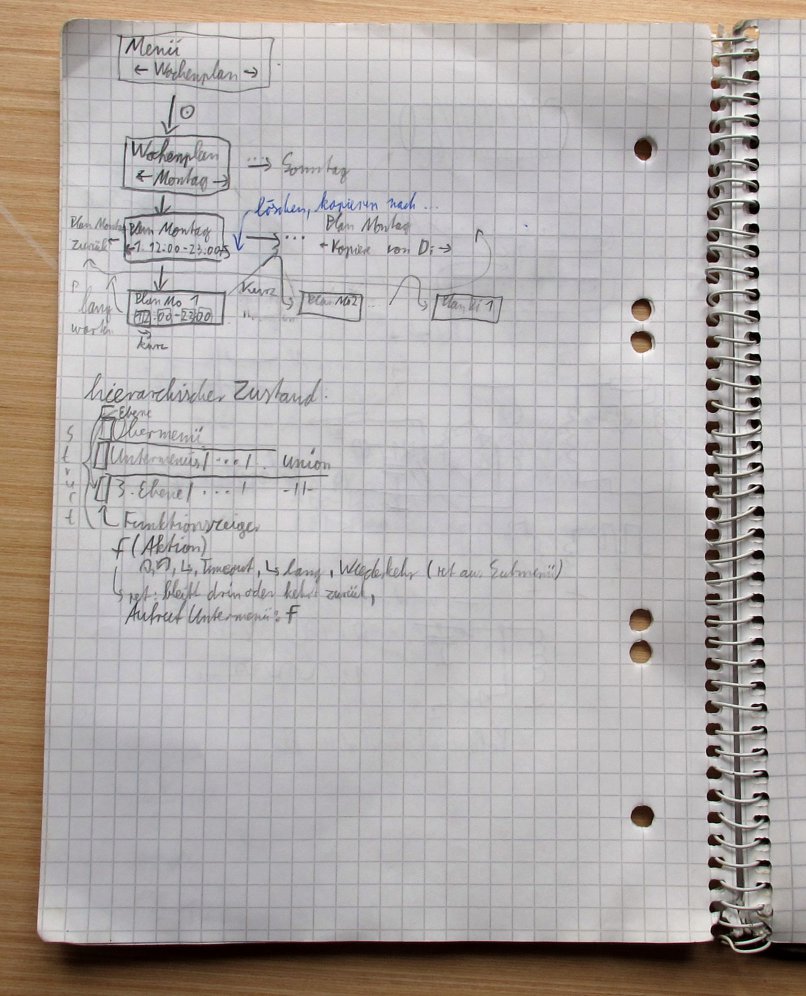 Menü
← Wochenplan →
Wochenplan
← Montag →
... → Sonntag
löschen, kopieren nach ...
Plan Montag
zurück ←
Plan Montag
← 1. 12:00-23:00 →
→ ...
Plan Montag
← Kopiere von Di →
Plan Mo 1
12:00-23:00
kurz
lang
warten
kurz
Plan Mo 2
...
Plan Di 1
hierarchischer Zustand
Ebene
Obermenü
Untermenüs | ... | union
3. Ebene | ... | -||-
struct
Funktionszeiger
f (Aktion)
Timeout, ↳ lang, Wiederkehr (ret aus Submenü)
ret: bleibt drin oder kehrt zurück,
Aufruf Untermenü: f